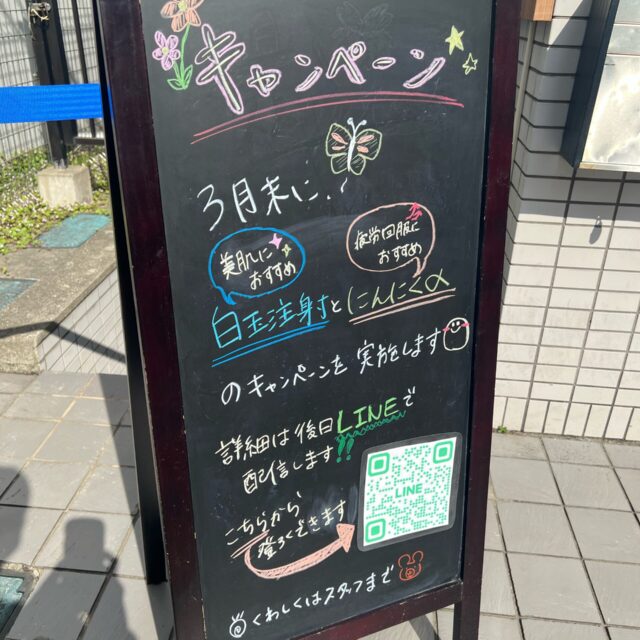 キャンペーン
3月末に！
美肌に
おすすめ
疲労回服に
おすすめ
白玉注射とにんにくα
のキャンペーンを実施します
詳細は後日LINEで
配信します!!
LINE
こちらから
登ろくできます
くわしくはスタッフまで